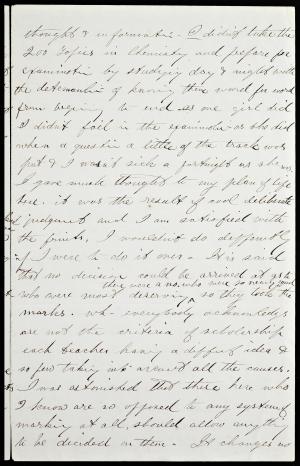 thought & information - I didn't take the
200 topics in Chemistry and prepare for
examination by studying day & night with
the determination of having them word for word
from begin to end as one girl did
I didn't fail in the examination as she did
when a question a little off the track was
put & I wasn't sick a fortnight as she was
I gave much thought to my plan of life
here. it was the result of cool deliberate
judgment and I am satisfied with
the fruits, I wouldn't do differently
if I were to do it over - It is said
that no decision could be arrived at as to
there were a no. who were so nearly equal
who were most deserving so they took the
marks. wh- everybody acknowledges
are not the criteria of scholarship
each teacher having a different idea &
so few taking wh- aren't all the causes.
I was astonished that those here who
I know are so opposed to any system of
marking at all, should allow anything
to be decided on them. It changes no